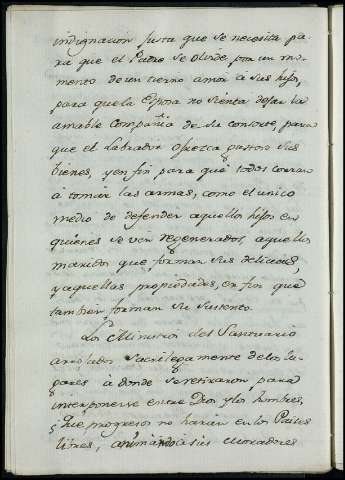 indignacion justa que se necesita pa-
ra que el Padre se olvide por un mo-
mento de un tierno amor à sus hijos,
para que la Esposa no sienta dejar la
amable compañia de su consorte, para
que el Labrador ofrezca gustoso sus
bienes, y en fin para que todos corran
à tomar las armas, como el unico
medio de defender aquellos hijos en
quienes se ven regenerados, aquellos
maridos que forman sus delicias,
y aquellas propiedades, en fin que
tambien forman su sustento.
Los Ministros del Santuario
arrojados sacrilegamente de los lu-
gares à donde se retiraron para
interponerse entre Dios y los hombres,
¿Que progresos no harán en los Paises
libres, animando à sus moradores